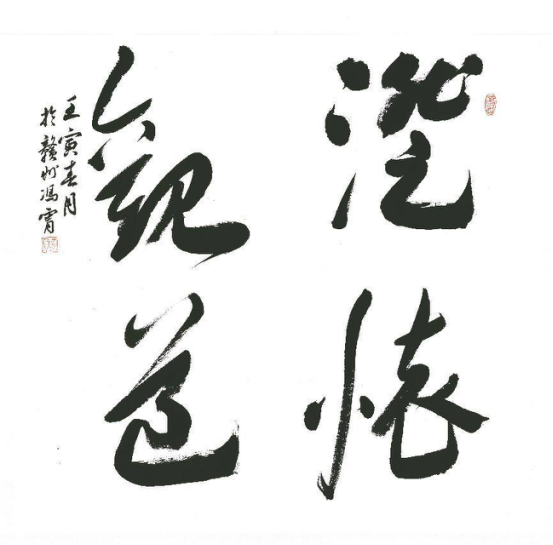 澄怀
观道
壬寅春月
於赣州冯霄